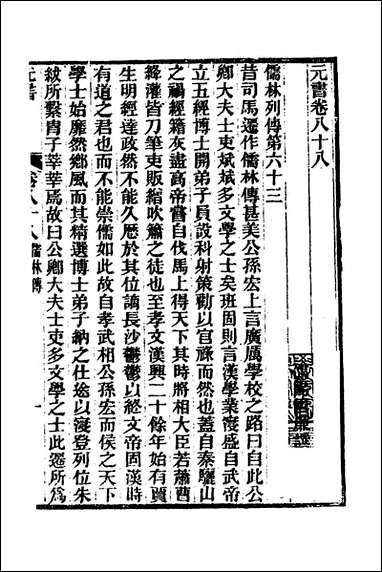 元書卷八十八
儒林列傳第六十三
昔司馬遷作儒林傳甚美公孫宏上言廣厲學校之路曰自此公
卿大夫士吏斌斌多文學之士矣班固則言漢學業寖盛自武帝
立五經博士開弟子員設科射策勸以官祿而然也蓋自秦驪山
之禍經籍灰燼高帝嘗自伐馬上得天下其時將相大臣若蕭曹
絳灌皆刀筆吏販繒吹簫之徒也至孝文漢興二十餘年始有賈
生明經達政然不能久厯於其位謫長沙鬱鬱以終文帝固漢時
有道之君也而不能崇儒如此故自孝武相公孫宏而侯之天下
學士始靡然鄉風而其精選博士弟子納之仕途以寖登列位朱
紱所繫冑子莘莘焉故曰公卿大夫士吏多文學之士此遷所爲
元書 卷八十八儒林傳 一